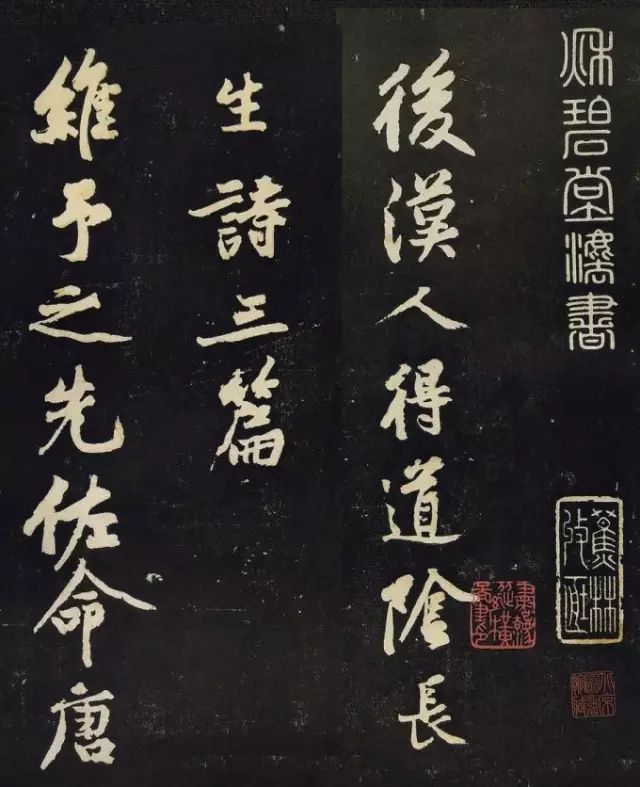 秌碧堂灋書
後漢人得道陰長
生詩三篇
維予之先佐命唐